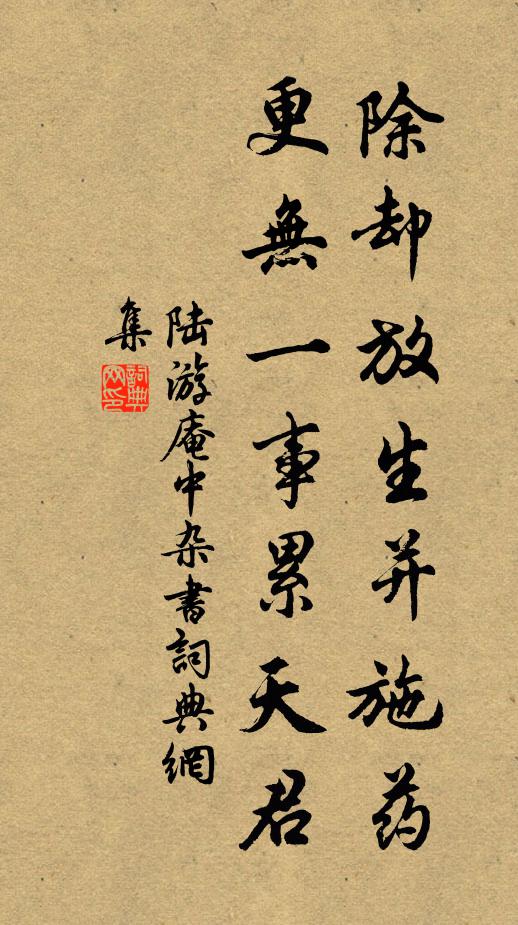 除却放生并施药
更無一事累天君
陆游庵中杂書詞典網
集
詞典網印